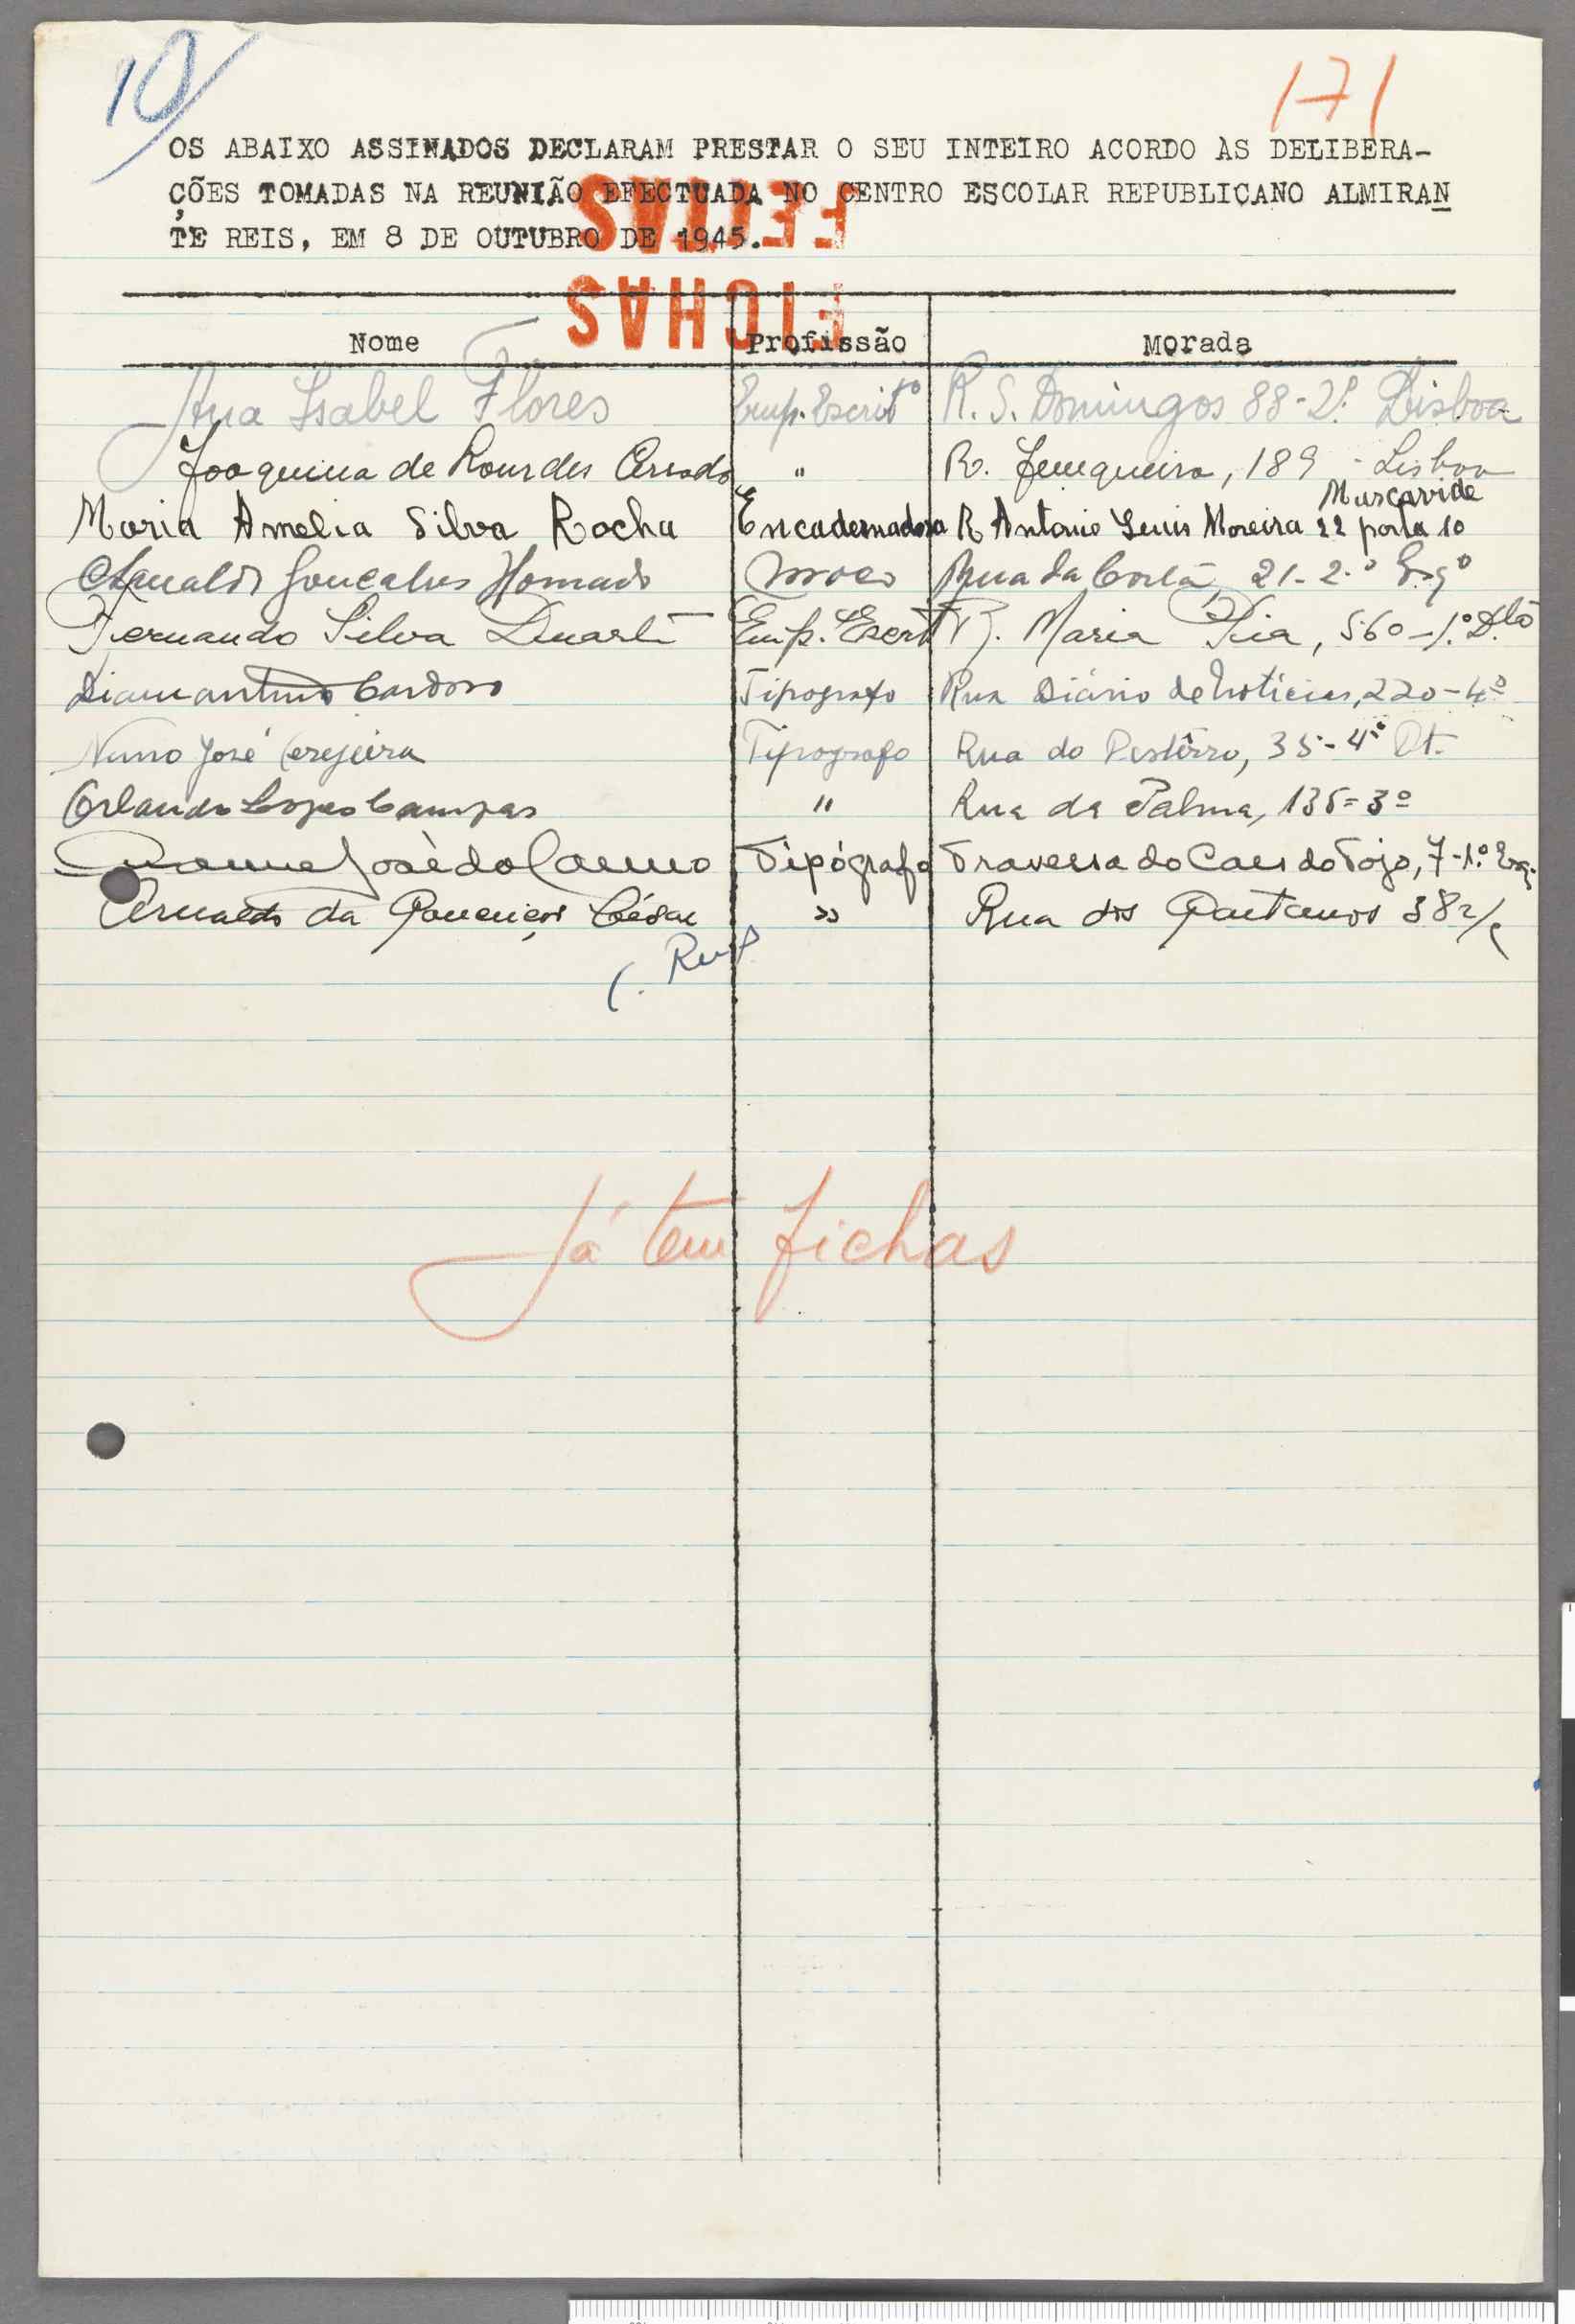 10/
171
OS ABAIXO ASSINADOS DECLARAM PRESTAR O SEU INTEIRO ACORDO ÀS DELIBERA-
ÇÕES TOMADAS NA REUNIÃO EFECTUADA NO CENTRO ESCOLAR REPUBLICANO ALMIRAN
TE REIS, EM 8 DE OUTUBRO DE 1945.
FEITAS
FICHAS
Nome Profissão Morada
Ana Isabel Flores Emp. Escritº R. S. Domingos 88-2º. Lisboa
Joaquina de Lourdes " R. Junqueira, 189 - Lisboa
Moscavide
Maria Amelia Silva Rocha Encadernadora R Antonio Luis Moreira 22 porta 10
Gonçalves Rua da 21-2.º Esqº
Fernando Silva Duarte Emp. Escrit R. Maria Pia, 560-1.º D.to
Diamantino Cardoso Tipografo Rua Diário de Notícias, 220-4º
Nuno José Cerejeira Tipografo Rua do Destêrro, 35-4º Dt.
Orlando Lopes Campas " Rua da Palma, 135=3º
Manuel José do Carmo Tipógrafo Travessa do Caes do Tojo, 7-1.º Esq.
Arnaldo da César » Rua dos Caetanos 38 r/c
Já tem fichas